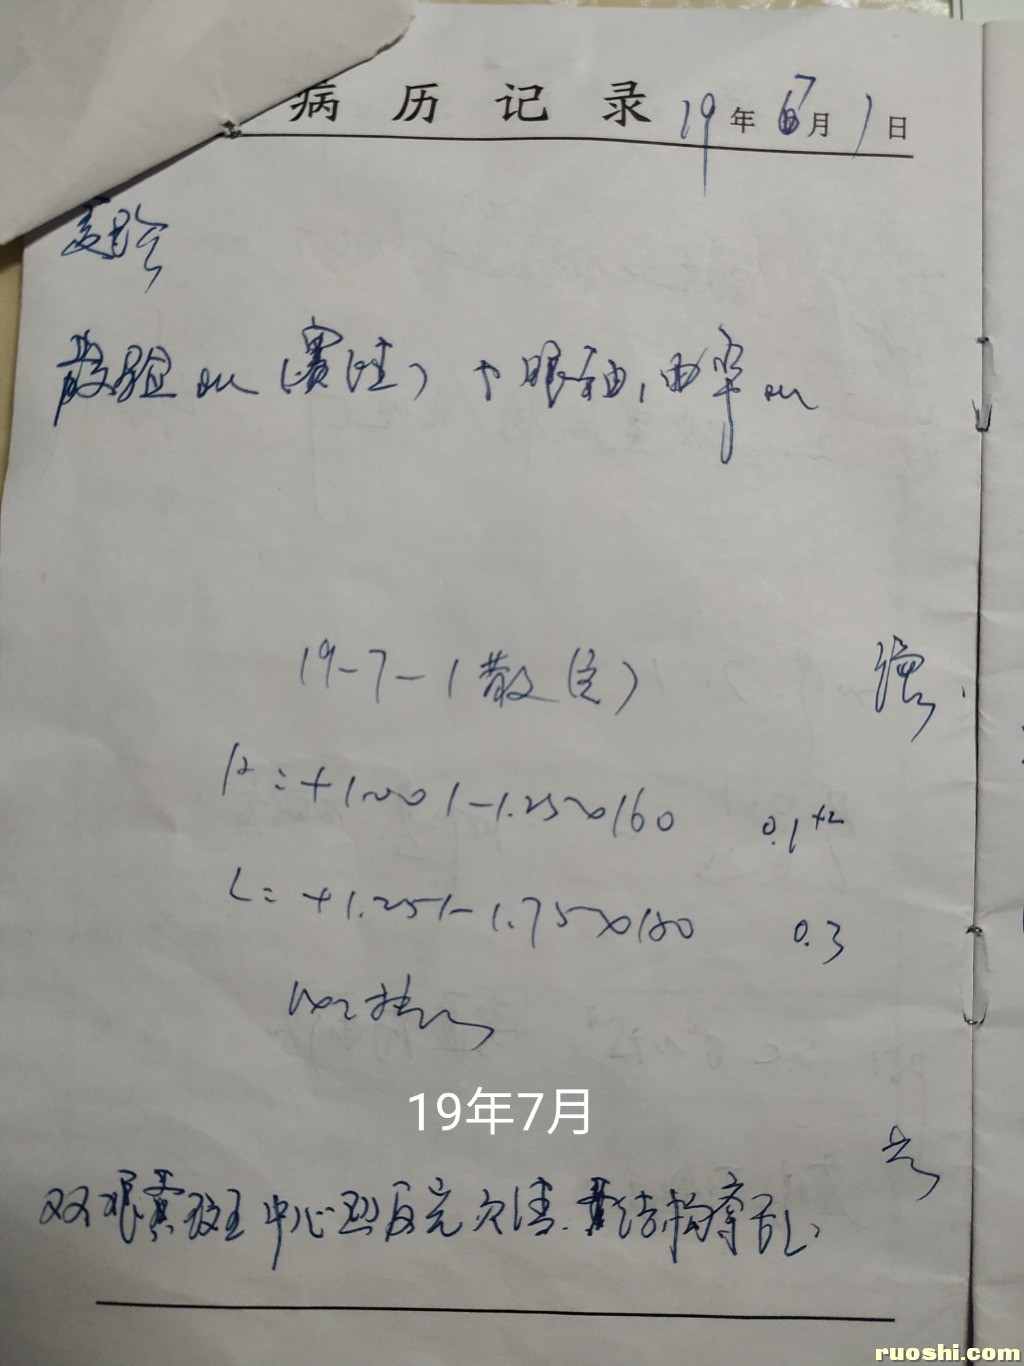 病历记录 19年7月1日
复诊
散验ou(赛飞)个眼轴,曲率ou
19-7-1散()
R=+1.00/-1.25×160 0.1+2
L=+1.25/-1.75×180 0.3
19年7月
双眼黄斑中心凹反光欠清.结构紊乱.
ruoshi.com